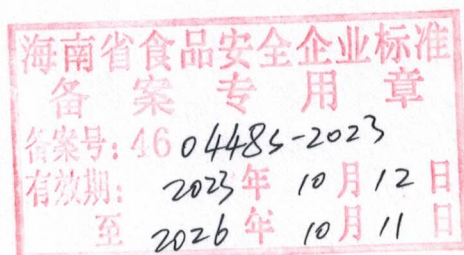 海南省食品安全企业标准
备案专用章
备案号:46 04485-2023
有效期: 2023年 10月12日
至 2026年 10月11日